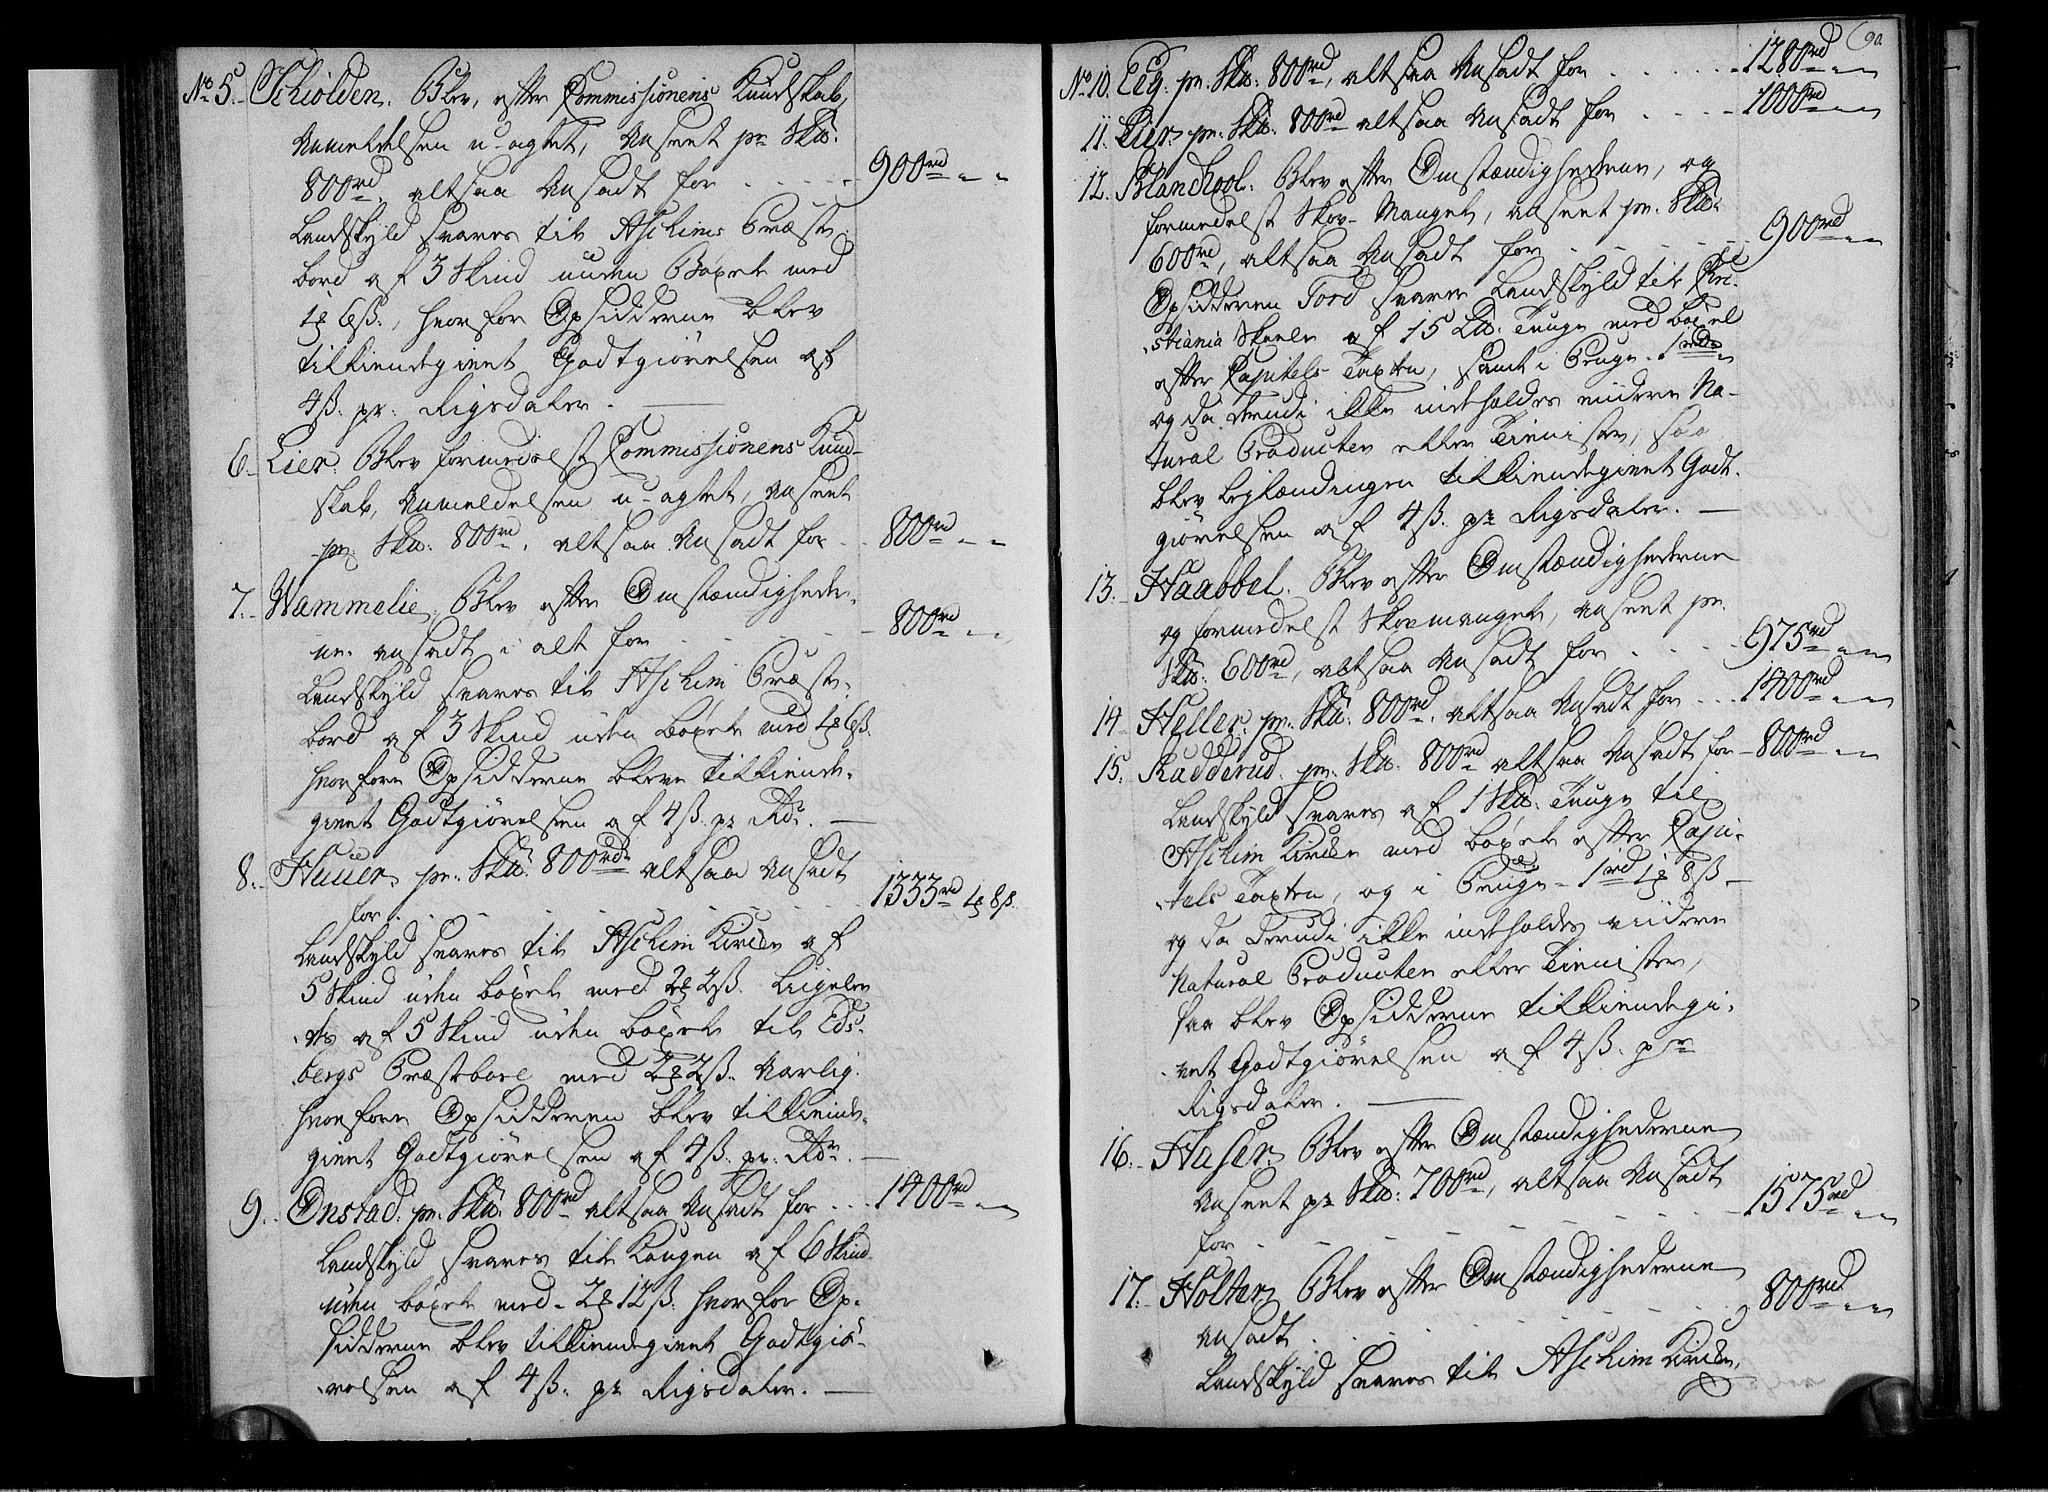 No 5. Schiolden. Blev, efter Commissionens Kundskab,
Anmeldelsen u-agtet, Anseet pr Skd:
800rd, altsaa Ansadt for . . . . . 900rd „ „
Landskyld svares til Aschims Præste-
bord af 3 Skind uden Böxel med
1 6ß., hvorfor Opsidderne blev
tilkiendegivet Godtgiörelsen af
4ß. pr. Rigsdaler. —
6. Lier. Blev formedelst Commissionens Kund-
skab, Anmeldelsen u-agtet, Anseet
pr. Skd: 800rd. altsaa Ansadt for . . 800rd „ „
7. Wammelie. Blev efter Omstændighede-
ne ansadt i alt for . . . . . 800rd „ „
Landskyld svares til Aschim Præste-
bord af 3 Skind uden böxel med 1 6ß.
hvorfore Opsidderne bleve tilkiende-
givet Godtgiörelsen af 4ß. pr Rdr. —
8. Huuer. pr. Skd: 800rd altsaa Ansadt
for . . . . . 1333rd 1 8ß.
Landskyld svares til Aschim Kirke af
5 Skind uden böxel med 2 2ß. Ligele-
des af 5 Skind uden böxel til Eds-
bergs Præstebord med 2 2ß. Aarlig.
hvorfore Opsidderen blev tilkiende-
givet Godtgiörelsen af 4ß. pr. Rdr. —
9. Onstad. pr. Skd: 800rd altsaa Ansadt for . . . 1400rd „ „
Landskyld svares til Kongen af 6 Skind
uden böxel med 2 12ß. hvorfor Op-
sidderne blev tilkiendegivet Godtgiö-
relsen af 4ß. pr Rigsdaler. —
90
No 10. Eeg. pr. Skd: 800rd, altsaa Ansadt for . . . . . 1280rd „ „
11. Lier. pr. Skd: 800rd altsaa Ansadt for . . . . 1000rd „ „
12. Blandhool. Blev efter Omstændighederne, og
formedelst Skov-Mangel, anseet pr. Skd:
600rd, altsaa Ansadt for . . . . . 900rd „ „
Opsidderen Tord svarer Landskyld til Chri-
stiania Skoele af 15 Ld. Tunge med böxel
efter Capitels-Taxten, samt i Penge - 1rd „ „
og da derudi ikke indeholdes viidere Na-
tural Producter eller Tieneste, saa
blev Leylændingen tilkiendegivet Godt-
giörelsen af 4ß. pr Rigsdaler. —
13. Haabbel. Blev efter Omstændighederne
og formedelst Skovmangel, anseet pr.
Skd: 600rd, altsaa Ansadt for . . . . 975rd „ „
14. Heller. pr. Skd: 800rd. altsaa Ansadt for . . . 1400rd „ „
15. Rudderud. pr. Skd. 800rd altsaa Ansadt for 800rd „ „
Landskyld svares af 1 Skd. Tunge til
Aschim Kirke med böxel efter Capi-
tels Taxten, og i Penge - 1rd 1 8ß —
og da derudi ikke indeholdes viidere
Natural Producter eller Tieneste,
saa blev Opsidderne tilkiendegi-
vet Godtgiörelsen af 4ß. pr
Rigsdaler. —
16. Haser. Blev efter Omstændighederne
Anseet pr Skd: 700rd, altsaa Ansadt
for . . . . . 1575rd „ „
17. Holter. Blev efter Omstændighederne
ansadt . . . . . 800rd „ „
Landskyld svares til Aschim Kirke,